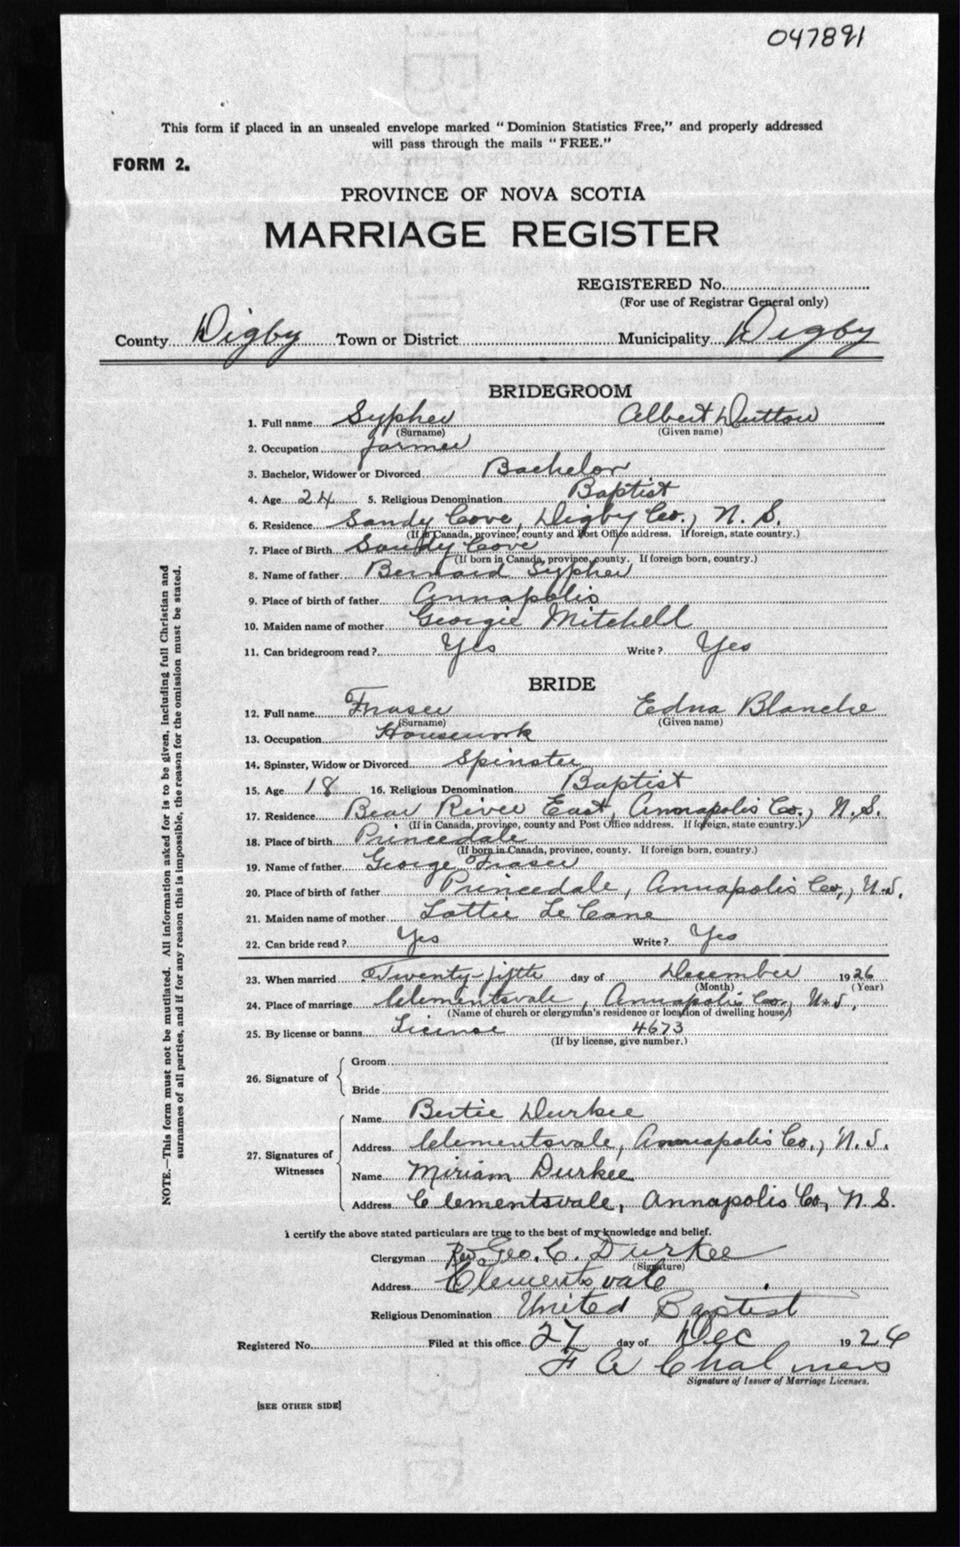 047891
This form if placed in an unsealed envelope marked "Dominion Statistics Free," and properly addressed
will pass through the mails "FREE."
FORM 2.
PROVINCE OF NOVA SCOTIA
MARRIAGE REGISTER
REGISTERED No.
(For use of Registrar General only)
County Digby Town or District Municipality Digby
BRIDEGROOM
1. Full name Sypher Albert Dutton
(Surname) (Given name)
2. Occupation farmer
3. Bachelor, Widower or Divorced Bachelor
4. Age 24 5. Religious Denomination Baptist
6. Residence Sandy Cove, Digby Co., N. S.
(If in Canada, province, county and Post Office address. If foreign, state country.)
7. Place of Birth Sandy Cove
(If born in Canada, province, county. If foreign born, country.)
8. Name of father Bernard Sypher
9. Place of birth of father Annapolis
10. Maiden name of mother Georgie Mitchell
11. Can bridegroom read? Yes Write? Yes
BRIDE
12. Full name Fraser Edna Blanche
(Surname) (Given name)
13. Occupation Housework
14. Spinster, Widow or Divorced Spinster
15. Age 18 16. Religious Denomination Baptist
17. Residence Bear River East, Annapolis Co., N.S.
(If in Canada, province, county and Post Office address. If foreign, state country.)
18. Place of birth Princedale
(If born in Canada, province, county. If foreign born, country.)
19. Name of father George Fraser
20. Place of birth of father Princedale, Annapolis Co., N.S.
21. Maiden name of mother Lottie Le Cane
22. Can bride read? Yes Write? Yes
23. When married Twenty-fifth day of December 1926
(Month) (Year)
24. Place of marriage Clementsvale, Annapolis Co., N.S.
(Name of church or clergyman's residence or location of dwelling house)
25. By license or banns License 4673
(If by license, give number.)
26. Signature of Groom
Bride
27. Signatures of Witnesses
Name Bertie Durkee
Address Clementsvale, Annapolis Co., N.S.
Name Miriam Durkee
Address Clementsvale, Annapolis Co, N.S.
I certify the above stated particulars are true to the best of my knowledge and belief.
Clergyman Rev Geo. C. Durkee
(Signature)
Address Clementsvale
Religious Denomination United Baptist
Registered No. Filed at this office 27 day of Dec 1926
F A Chalmers
Signature of Issuer of Marriage Licenses.
[SEE OTHER SIDE]
NOTE.—This form must not be mutilated. All information asked for is to be given, including full Christian and
surnames of all parties, and if for any reason this is impossible, the reason for the omission must be stated.